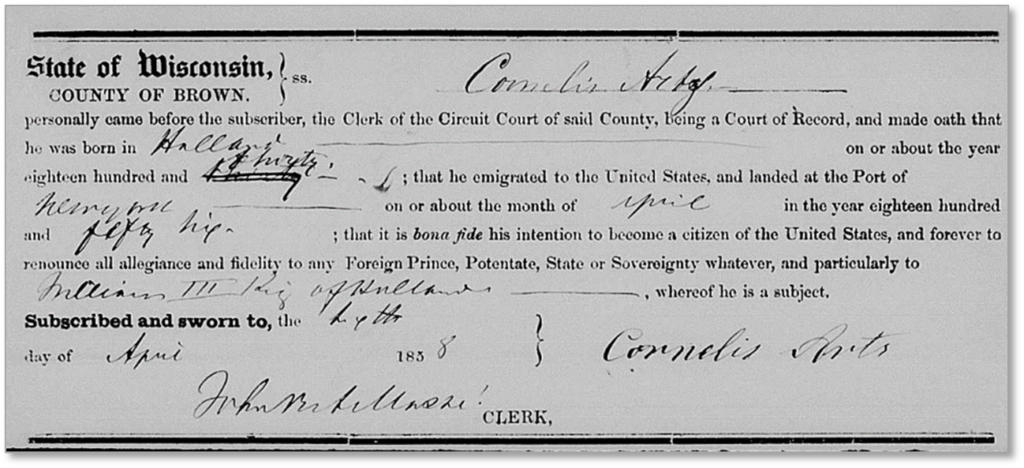 State of Wisconsin, } ss. Cornelis
COUNTY OF BROWN.
personally came before the subscriber, the Clerk of the Circuit Court of said County, being a Court of Record, and made oath that
he was born in Holland on or about the year
eighteen hundred and thirty ; that he emigrated to the United States, and landed at the Port of
Newyork on or about the month of April in the year eighteen hundred
and fifty six ; that it is bona fide his intention to become a citizen of the United States, and forever to
renounce all allegiance and fidelity to any Foreign Prince, Potentate, State or Sovereignty whatever, and particularly to
William III King of Holland , whereof he is a subject.
Subscribed and sworn to, the
day of April 1858 } Cornelis Arts
John
CLERK,